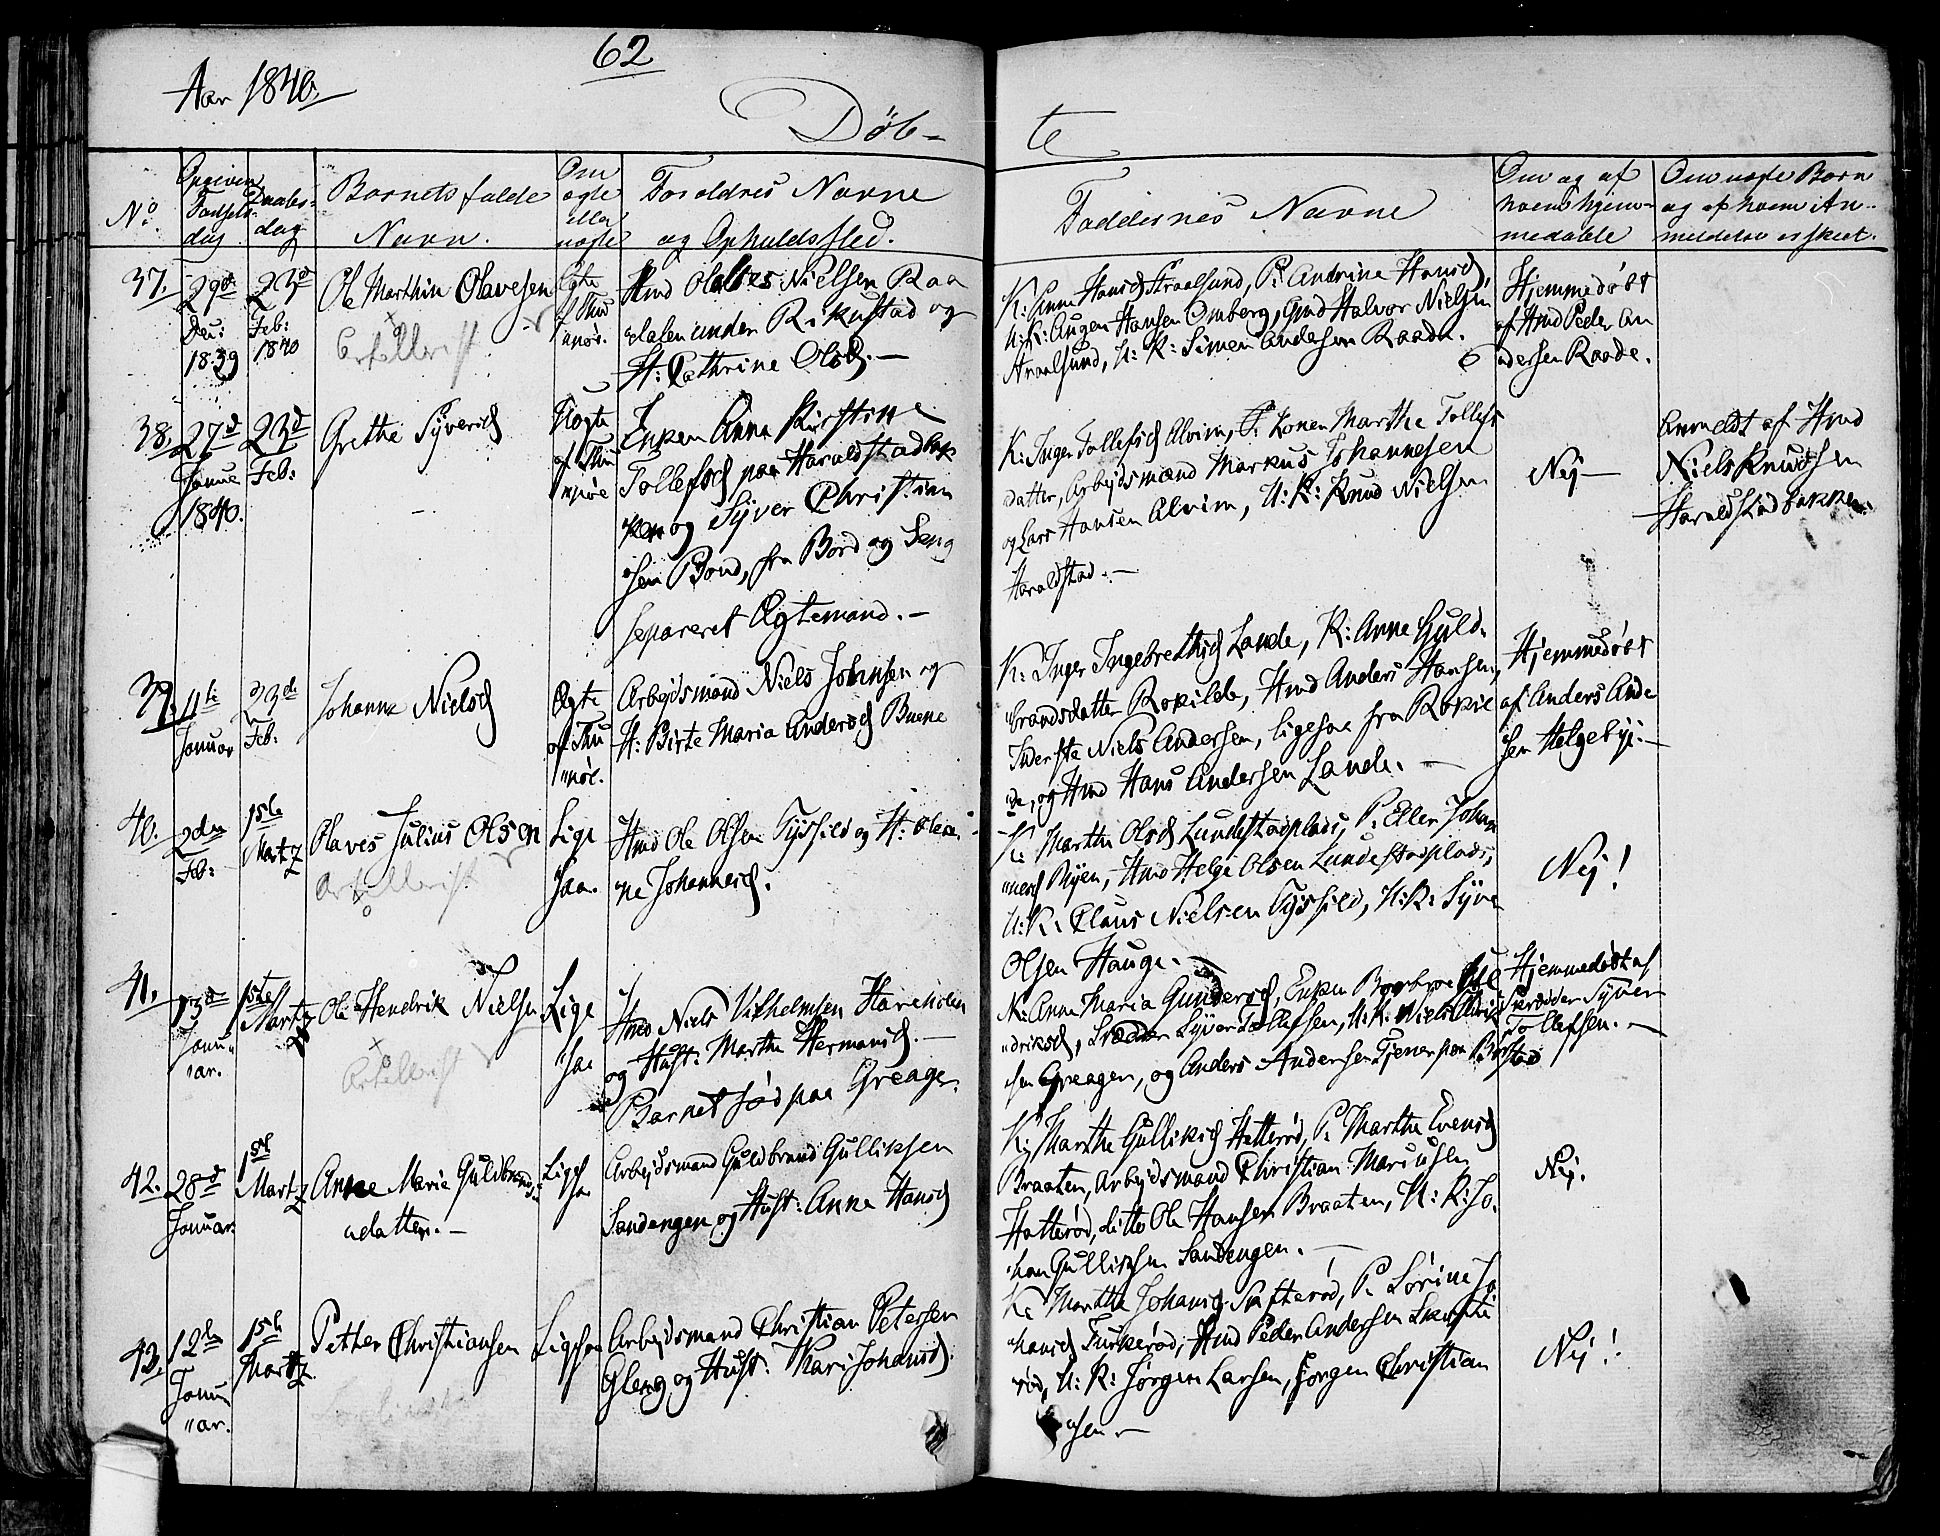 62
Aar 1840.
Døb-
te
No.
Opgiven Fødsels-dag
Daabs-dag
Barnets fulde
Navn.
Om ægte eller uægte
Forældres Navne
og Opholdssted.
Faddernes Navne
Om og af
hvem hjem-
medøbte
Om uægte Børn
og af hvem An-
meldelse er skeet.
37.
29de
Dec:
1839
23d
Feb:
1840
Ole Marthin Olavesen
Artillerist
Ægte
Hmd Olaves Nielsen Raa
dalen under Rikustad og
H: Cathrine Olsd. —
K: Anne Hansd Straalsund, P: Andrine Hansd,
U: K: Augen Hansen Omberg, Gmd Halvor Nielsen
Straalsund, U: K: Simen Andersen Raade.
Hjemmedøbt
af Hmd Peder An
dersen Raade.
38.
27d
Janua
1840.
23d
Feb:
Grethe Syversd
Uægte
Enken Anne Kirstine
Tollefsd paa Haraldstadbak
ken og Syver Christian
sen Bond, fra Bord og Seng
separeret Ægtemand. —
K: Inger Tollefsd Alvim, P: Konen Marthe Tollefs
datter, Arbejdsmand Markus Johannesen
og Lars Hansen Alvim, U: K: Knud Nielsen
Haraldstad. —
Nej —
Anmeldt af Hmd
Niels Knudsen
Haraldstadbakken.
39.
11te
Januar
23de
Feb:
Johanne Nielsd
Ægte
Arbejdsmand Niels Johnsen og
H: Birte Maria Andersd Buene
K: Inger Ingebrethsd Lande, K: Anne Guld-
brandsdatter Rokilde, Hmd Anders Hansen,
Inderste Niels Andersen, ligesaa fra Rokil
de, og Hmd Hans Andersen Lande. —
Hjemmedøbt
af Anders Ande
sen Helgebye. —
40.
2den
Feb:
1ste
Martz
Olaves Julius Olsen
Artillerist
Lige
saa.
Hmd Ole Olsen Tysfild og H: Olea-
ne Johannesd.
K: Marthe Olsd Lundestadplads, P: Eller Johan
nesd Byen, Hmd Helge Olsen Lundestadplads,
U: K: Claus Nielsen Tysfild, U: K: Syver
Olsen Hauge. —
Nej!
41.
13de
Janu
ar.
1ste
Martz
Ole Hendrik Nielsen
Artillerist
Lige
saa
Hmd Niels Vilhelmsen Hareholen
og Hust: Marthe Hermansd. —
Barnet fød paa Greager.
K: Anne Maria Gundersd, Enken Barbroe
driksd, Skræder Syver Tollefsen, U: K: Niels
sen Greager, og Anders Andersen Tjener paa Borstad
Hjemmedøbt af
Skræder Syver
Tollefsen. —
42.
28d
Januar.
1ste
Martz
Anne Marie Guldbrands
datter. —
Lige
saa
Arbejdsmand Guldbrand Gulliksen
Sandengen og Hust: Anne Hansd
K: Marthe Gulliksd Hatterød, P: Marthe Evensd
Braaten, Arbejdsmand Christian Mariusen
Hatterød, ditto Ole Hansen Braaten, U: K: Jo-
han Gulliksen Sandengen. —
Nej.
43.
12te
Janu
ar.
1ste
Martz
Petter Christiansen
Ligesaa
Arbejdsmand Christian Petersen
Gleng og Hust: Kari Johansd.
K: Marthe Johansd Skofterød, P: Sørine Jo
hansd Turkerød, Hmd Peder Andersen Skofte
rød, U: K: Jørgen Larsen, Jørgen Christian
sen. —
Nej!